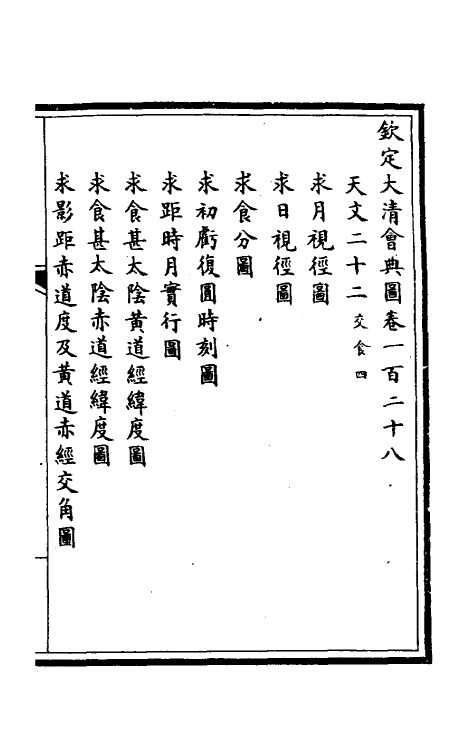 欽定大清會典圖卷一百二十八
天文二十二 交食四
求月視徑圖
求日視徑圖
求食分圖
求初虧復圓時刻圖
求距時月實行圖
求食甚太陰黃道經緯度圖
求食甚太陰赤道經緯度圖
求影距赤道度及黃道赤經交角圖